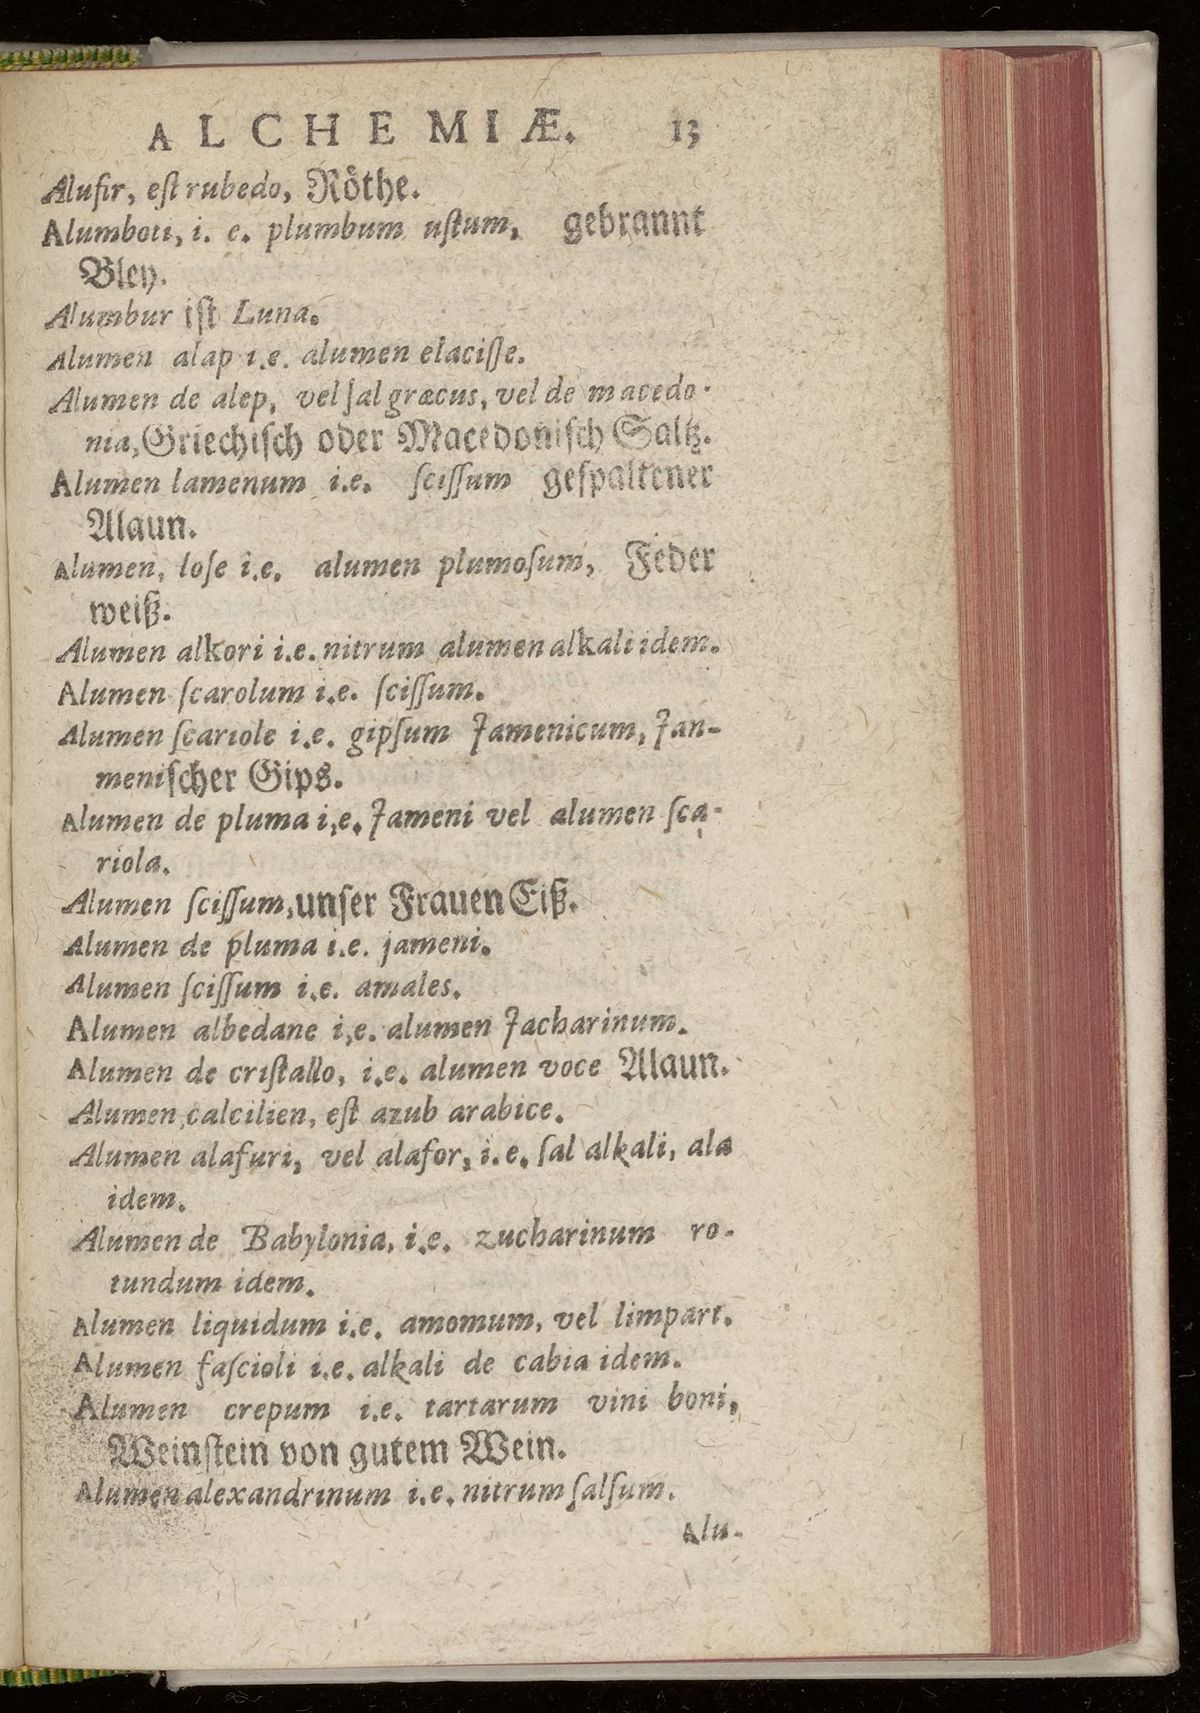 ALCHEMIÆ. 13
Alufir, eſt rubedo, Röthe.
Alumboti, i. e. plumbum uſtum, gebrannt
Bley.
Alumbur iſt Luna.
Alumen alap i.e. alumen elaciſſe.
Alumen de alep, vel ſal græcus, vel de macedo-
nia, Griechiſch oder Macedoniſch Saltz.
Alumen lamenum i.e. ſciſſum geſpaltener
Alaun.
Alumen, loſe i.e. alumen plumoſum, Feder
weiß.
Alumen alkori i.e. nitrum alumen alkali idem.
Alumen ſcarolum i.e. ſciſſum.
Alumen ſcariole i.e. gipſum Jamenicum, Jan-
meniſcher Gips.
Alumen de pluma i,e. Jameni vel alumen ſca-
riola.
Alumen ſciſſum, unſer Frauen Eiß.
Alumen de pluma i.e. jameni.
Alumen ſciſſum i.e. amales.
Alumen albedane i,e. alumen Jacharinum.
Alumen de criſtallo, i.e. alumen voce Alaun.
Alumen calcilien, eſt azub arabice.
Alumen alafuri, vel alafor, i.e. ſal alkali, ala
idem.
Alumen de Babylonia, i.e. zucharinum ro-
tundum idem.
Alumen liquidum i.e. amomum, vel limpart.
Alumen faſcioli i.e. alkali de cabia idem.
Alumen crepum i.e. tartarum vini boni,
Weinſtein von gutem Wein.
Alumen alexandrinum i.e. nitrum ſalſum.
Alu-